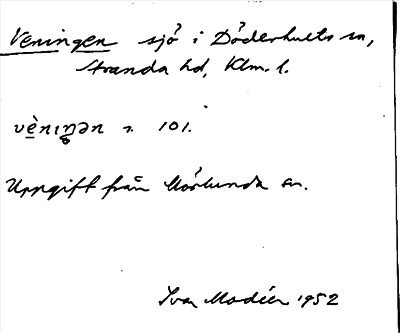 Veningen sjö i Döderhults sn,
Stranda hd, Klm. l.
vὲnıŋən n. 101.
Uppgift från Mörlunda sn.
Ivar Modéer 1952